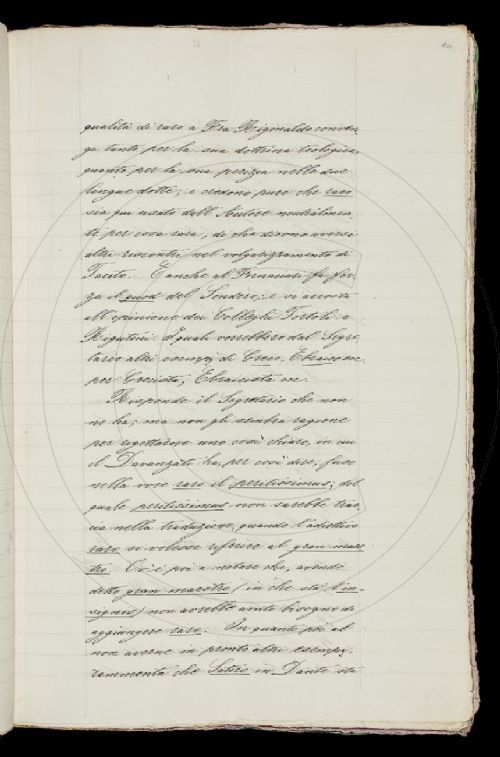 101
qualità di raro a Fra Riginaldo conven-
ga tanto per la sua dottrina teologica
quanto per la sua perizia nelle due
lingue dotte; e credono pure che raro
sia qui usato dall'Autore neutralmen-
te per cosa rara; di che dicono avessi
altri riscontri nel volgarizzamento di
Tacito. E anche al Fornaciari fa for-
za il quod del Sondero; e si accosta
all'opinione dei Colleghi Tortoli e
Rigutini. I quali vorrebbero dal Segre-
tario altri esempj di Greco, Ebraico ec.
per Grecista, Ebraicista ec.
Risponde il Segretario che non
ne ha; ma non gli sembra ragione
per rigettarne uno così chiaro, in cui
il Davanzati ha, per così dire, fuse
nella voce raro il peritissimus; del
quale peritissimus non sarebbe trac-
cia nella traduzione, quando l'adiettivo
raro si volesse riferire al gran maes-
tro. Ov'è poi a notare che, avendo
detto gran maestro (in che sta l'in-
signis) non avrebbe avuto bisogno di
aggiungere raro. In quanto poi al
non averne in pronto altri esempj,
rammenta che Satiro in Dante sta